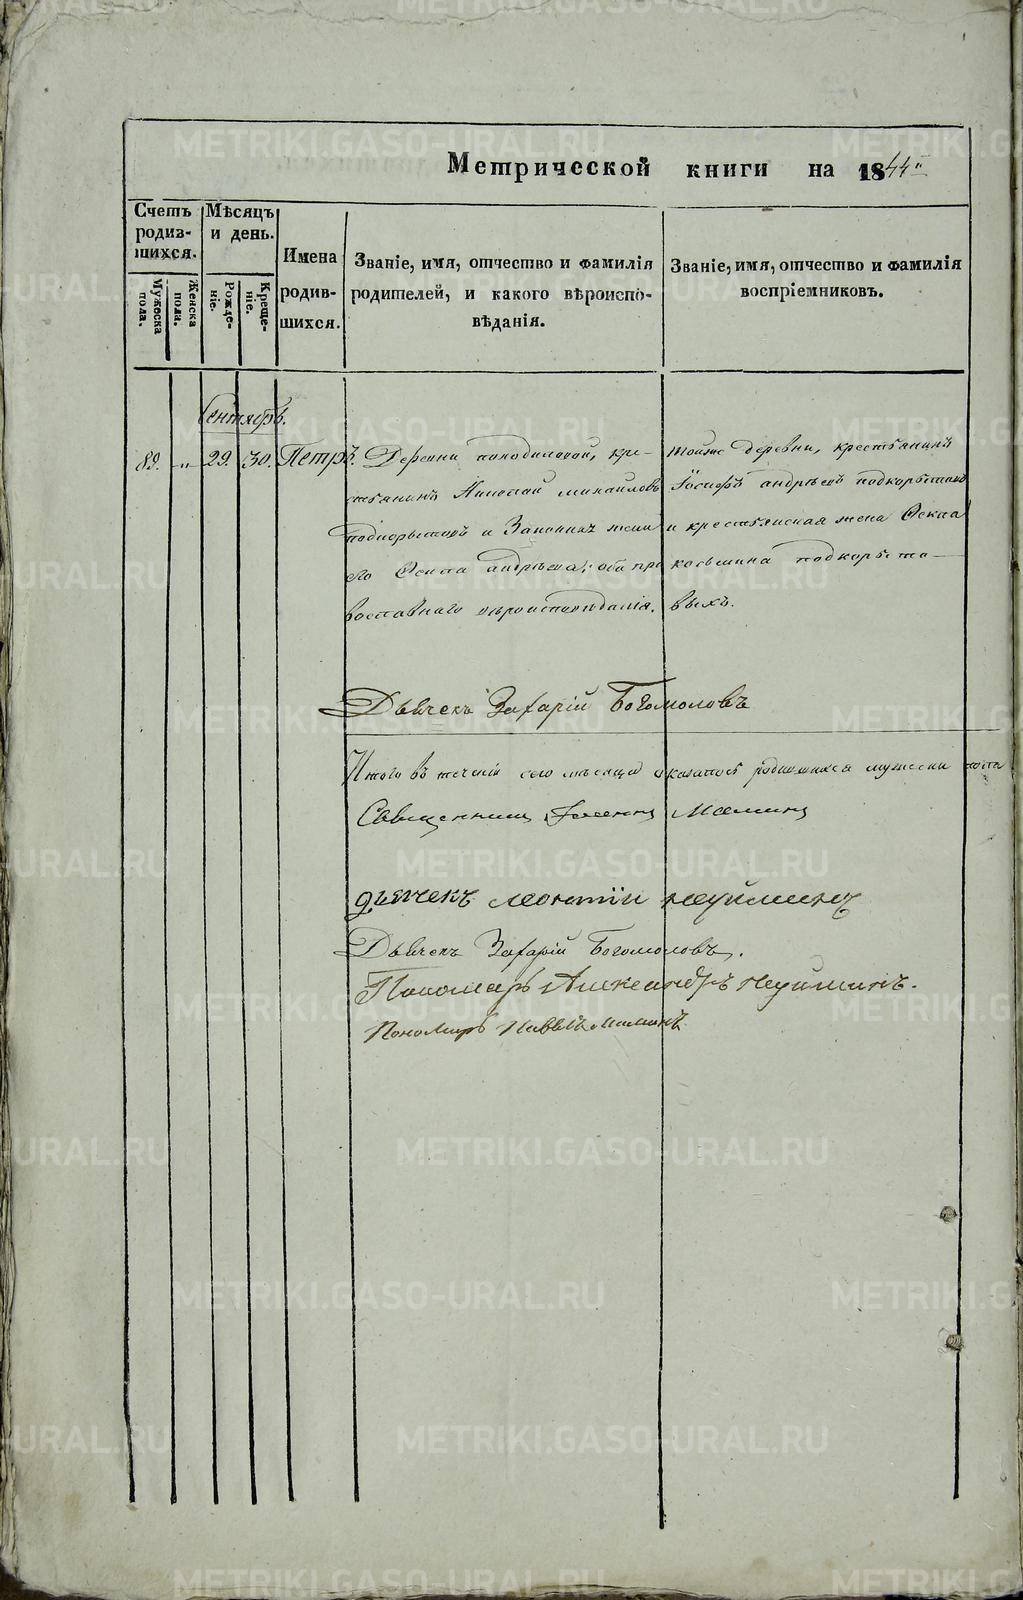 Метрической книги на 1844й
Счетъ родив-шихся.
Мужеска пола.
Женска пола.
Мѣсяцъ и день.
Рожде-ніе.
Креще-ніе.
Имена родив-шихся.
Званіе, имя, отчество и фамилія
родителей, и какого вѣроиспо-
вѣданія.
Званіе, имя, отчество и фамилія
воспріемниковъ.
Сентябрь.
89. „ 29. 30. Петръ.
Деревни кре-
стьянинъ Николай Михайловъ
и Законная жена
его Андрѣева; оба пра
вославнаго вѣроисповѣданія.
тойже деревни, крестьянинъ
Іосифъ андрѣевъ подкорытовъ
и крестьянская жена Фекла
косьмина подкорыто-
выхъ.
Дьячекъ Захарій Богомоловъ
Итого въ теченіи сего мѣсяца оказалось родившихся мужеска пола
Священникъ Іоаннъ Маминъ
дьячекъ леонтій неуйминъ
Дьячекъ Захарій Богомоловъ.
Пономарь Александръ Неуйминъ.
Пономарь Павелъ Маминъ
METRIKI.GASO-URAL.RU